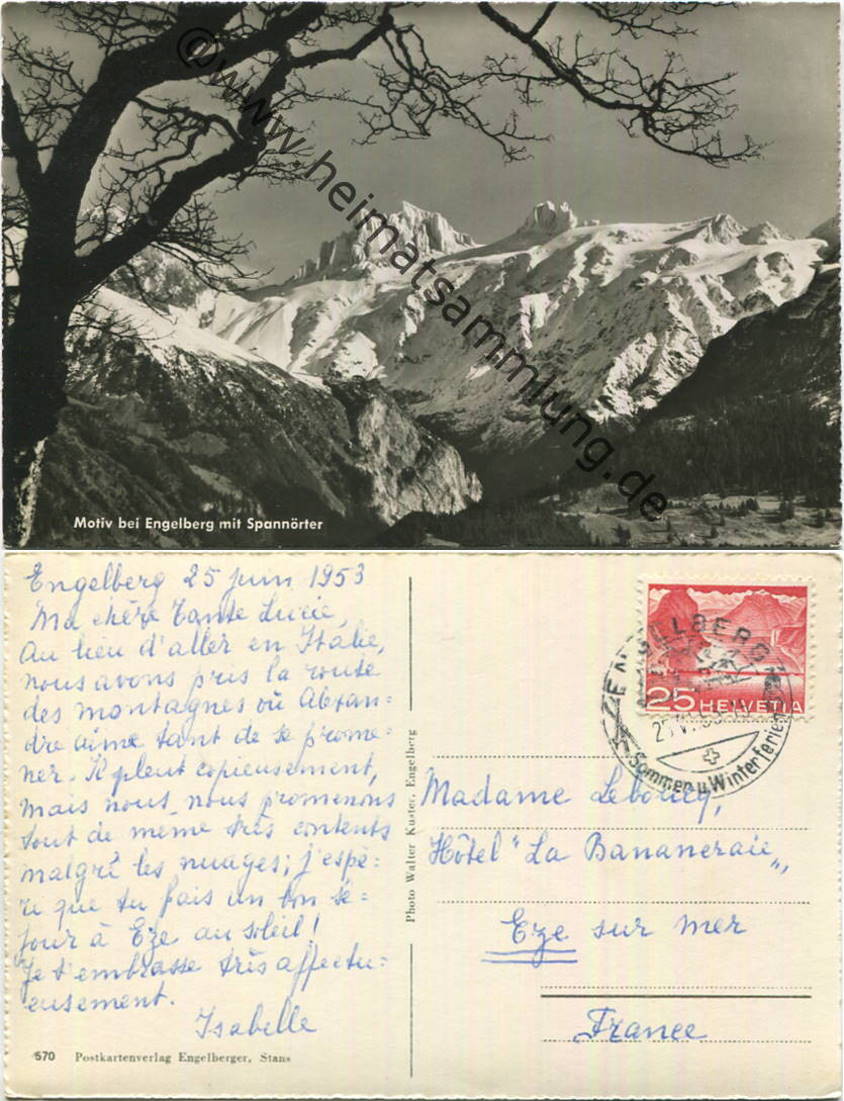 ©www.heimatsammlung.de
Motiv bei Engelberg mit Spannörter
Engelberg 25 juin 1953
Ma chère Tante Lucie,
au lieu d'aller en Italie,
nous avons pris la route
des montagnes où Alexan-
dre aime tant de se prome-
ner. Il pleut copieusement,
mais nous nous promenons
tout de même très contents
malgré les nuages; j'espè-
re que tu fais un bon sé-
jour à Eze au soleil!
Je t'embrasse très affectu-
eusement.
Isabelle
570 Postkartenverlag Engelberger, Stans
Photo Walter Kuster, Engelberg
25 HELVETIA
ENGELBERG
Sommer u. Winterferien
Madame Lebourq,
Hôtel "La Bananeraie",
Eze sur mer
France